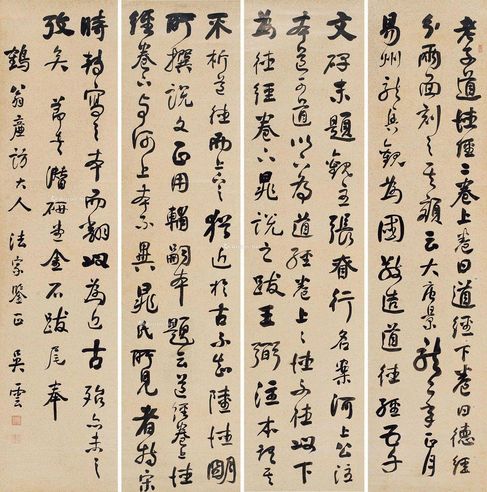 老子道德經二卷上卷曰道經下卷曰德經
分兩面刻之其額云大唐景龍二年正月
易州龍興觀為國敬造道德經五千
文碑末題觀主張眘行名案河上公注
本道可道以下為道經卷上上德不德以下
為德經卷下晁說之跋王弼注本謂其
不析道德而上下之猶近於古不知陸德明
所撰說文正用輔嗣本題云道經卷上德
經卷下与河上本不異晁氏所見者特宋
時轉寫之本而翻以為近古殆亦未之
攷矣 節录潛研堂金石跋尾奉
鶴翁廉訪大人法家鑒正 吳雲